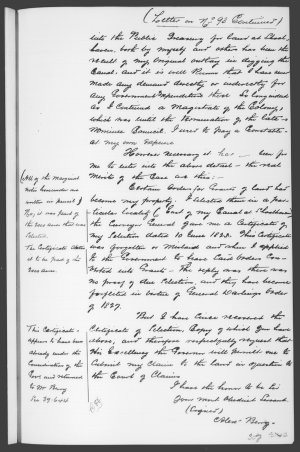 (Letter on No 93 Continued)
into the Public Treasury for land at Chat-
haven, both by myself and others has been the
result of my original outlay in digging the
Canal, and it is well known that I have never
made any demand directly or indirectly for
any Government Expenditure there. So long indeed
as I continued a Magistrate of the Colony,
which was until the nomination of the
Council, I used to pay a Constable
at my own expense
However necessary it has been for
me to enter into the above detail - the real
Merits of the Case are this:-
Certain Orders for Grants of Land had
become my property. I selected them in a par-
ticular locality East of my Canal at
the Surveyor General gave me a Certificate of
my Selection dated 10 June 1823. This Certificate
was forgotten or mislaid and when I applied
to the Government to have said Orders Con-
verted into Grants - The reply was there was
no proof of due Selection, and they have become
forfeited in virtue of General Darlings Order
of 1827.
But I have since recovered the
Certificate of Selection Copy of which You have
above, and therefore respectfully request that
His Excellency the Governor will permit me to
Submit my claim to the land in question to
the Court of Claims
I have the honor to be Sir
Your most Obedient Servant
(Signed)
Alexr Berry
of the Marginal
Note hereunder as
written in pencil
No, it was part of
the same
Selection
The Certificate
to be proof of the
same
The Certificate
appears to have been
already under the
Consideration of the
Govr and returned
to Mr Berry